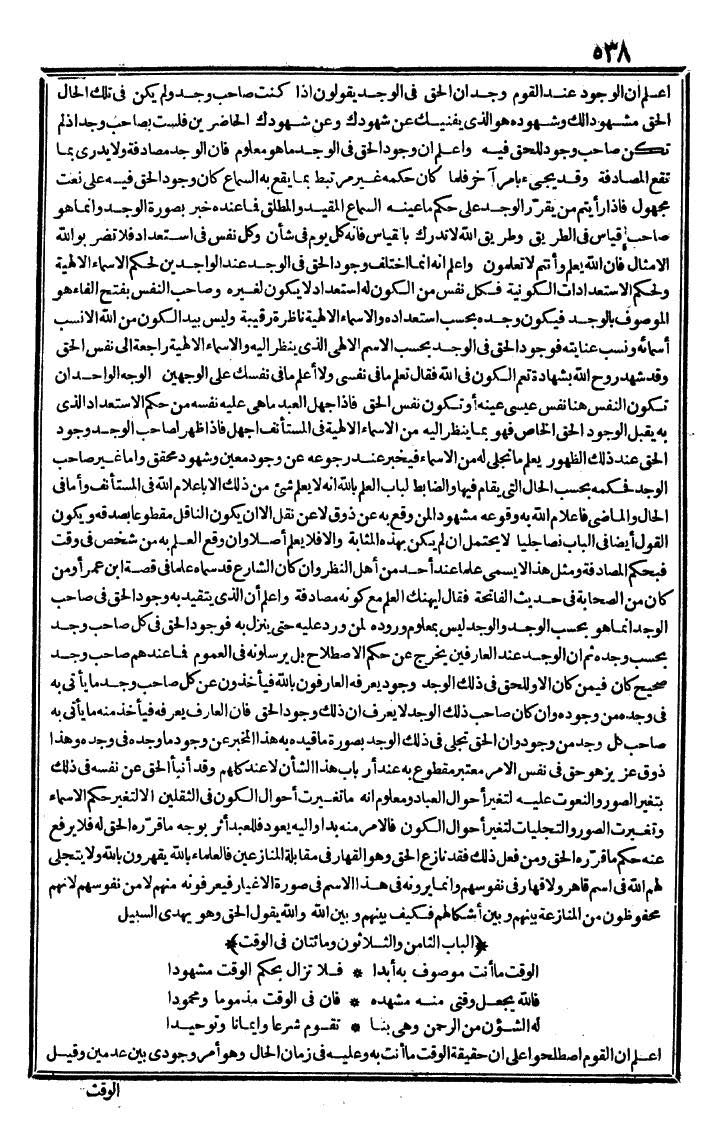 ٥٣٨
اعلم ان الوجود عند القوم وجدان الحق فى الوجد يقولون اذا كنت صاحب وجد ولم يكن فى تلك الحال
الحق مشهودا لك وشهوده هو الذى يفنيك عن شهودك وعن شهودك الحاضرين فلست بصاحب وجد اذ لم
تكن صاحب وجود للحق فيه واعلم ان وجود الحق فى الوجد ما هو معلوم فان الوجد مصادفة ولا يدرى بما
تقع المصادفة وقد يجىء بامر آخر فلما كان حكمه غير مرتبط بما يقع به السماع كان وجود الحق فيه على نعت
مجهول فاذا رأيتم من يقرّر الوجد على حكم ما عينه السماع المقيد والمطلق فما عنده خبر بصورة الوجد وانما هو
صاحب قياس فى الطريق وطريق الله لا تدرك بالقياس فانه كل يوم فى شأن وكل نفس فى استعداد فلا تضربوا لله
الامثال فان الله يعلم وأنتم لا تعلمون واعلم انه انما اختلف وجود الحق فى الوجد عند الواجدين لحكم الاسماء الالهية
ولحكم الاستعدادات الكونية فكل نفس من الكون له استعداد لا يكون لغيره وصاحب النفس بفتح الفاء هو
الموصوف بالوجد فيكون وجده بحسب استعداده والاسماء الالهية ناظرة رقيبة وليس بيد الكون من الله الا نسب
أسمائه ونسب عنايته فوجود الحق فى الوجد بحسب الاسم الالهى الذى ينظر اليه والاسماء الالهية راجعة الى نفس الحق
وقد شهد روح الله بشهادة تعم الكون فى الله فقال تعلم ما فى نفسى ولا أعلم ما فى نفسك على الوجهين الوجه الواحد ان
تكون النفس هنا نفس عيسى عينه أو تكون نفس الحق فاذا جهل العبد ما هى عليه نفسه من حكم الاستعداد الذى
به يقبل الوجود الحق الخاص فهو بما ينظر اليه من الاسماء الالهية فى المستأنف اجهل فاذا ظهر لصاحب الوجد وجود
الحق عند ذلك الظهور يعلم ما تجلى له من الاسماء فيخبر عند رجوعه عن وجود معين وشهود محقق واما غير صاحب
الوجد فحكمه بحسب الحال التى يقام فيها والضابط لباب العلم بالله انه لا يعلم شئ من ذلك الا باعلام الله فى المستأنف وأما فى
الحال والماضى فاعلام الله به وقوعه مشهودا لمن وقع به عن ذوق لا عن نقل الا ان يكون الناقل مقطوعا بصدقه ويكون
القول أيضا فى الباب نصا جليا لا يحتمل ان لم يكن بهذه المثابة والا فلا يعلم أصلا وان وقع العلم به من شخص فى وقت
فبحكم المصادفة ومثل هذا لا يسمى علما عند أحد من أهل النظر وان كان الشارع قد سماه علما فى قصة ابن عمر أو من
كان من الصحابة فى حديث الفاتحة فقال ليهنك العلم مع كونه مصادفة واعلم أن الذى يتقيد به وجود الحق فى صاحب
الوجد انما هو بحسب الوجد والوجد ليس بمعلوم وروده لمن ورد عليه حتى ينزل به فوجود الحق فى كل صاحب وجد
بحسب وجده ثم ان الوجد عند العارفين يخرج عن حكم الاصطلاح بل يرسلونه فى العموم فما عندهم صاحب وجد
صحيح كان فيمن كان الا وللحق فى ذلك الوجد وجود يعرفه العارفون بالله فيأخذون عن كل صاحب وجد ما يأتى به
فى وجده من وجوده وان كان صاحب ذلك الوجد لا يعرف ان ذلك وجود الحق فان العارف يعرفه فيأخذ منه ما يأتى به
صاحب كل وجد من وجود وان الحق تجلى فى ذلك الوجد بصورة ما قيده به هذا المخبر عن وجود ما وجده فى وجده وهذا
ذوق عزيز هو حق فى نفس الامر معتبر مقطوع به عند أرباب هذا الشأن لا عند كلهم وقد أنبأ الحق عن نفسه فى ذلك
بتغير الصور والنعوت عليه لتغير أحوال العباد ومعلوم انه ما تغيرت أحوال الكون فى الثقلين الا لتغير حكم الاسماء
وتغيرت الصور والتجليات لتغير أحوال الكون فالامر منه بدا واليه يعود فللعبد أثر بوجه ما قرّره الحق له فلا يرفع
عنه حكم ما قرّره الحق ومن فعل ذلك فقد نازع الحق وهو القهار فى مقابلة المنازعين فالعلماء بالله يقهرون بالله ولا يتجلى
لهم الله فى اسم قاهر ولا قهار فى نفوسهم وانما يرونه فى هذا الاسم فى صورة الاغيار فيعرفونه منهم لا من نفوسهم لانهم
محفوظون من المنازعة بينهم وبين أشكالهم فكيف بينهم وبين الله والله يقول الحق وهو يهدى السبيل
﴿الباب الثامن والثلاثون ومائتان فى الوقت﴾
الوقت ما أنت موصوف به أبدا * فلا تزال بحكم الوقت مشهودا
فالله يجعل وقتى منه مشهده * فان فى الوقت مذموما ومحمودا
له الشؤن من الرحمن وهى بنا * تقوم شرعا وايمانا وتوحيدا
اعلم ان القوم اصطلحوا على ان حقيقة الوقت ما أنت به وعليه فى زمان الحال وهو أمر وجودى بين عدمين وقيل
الوقت